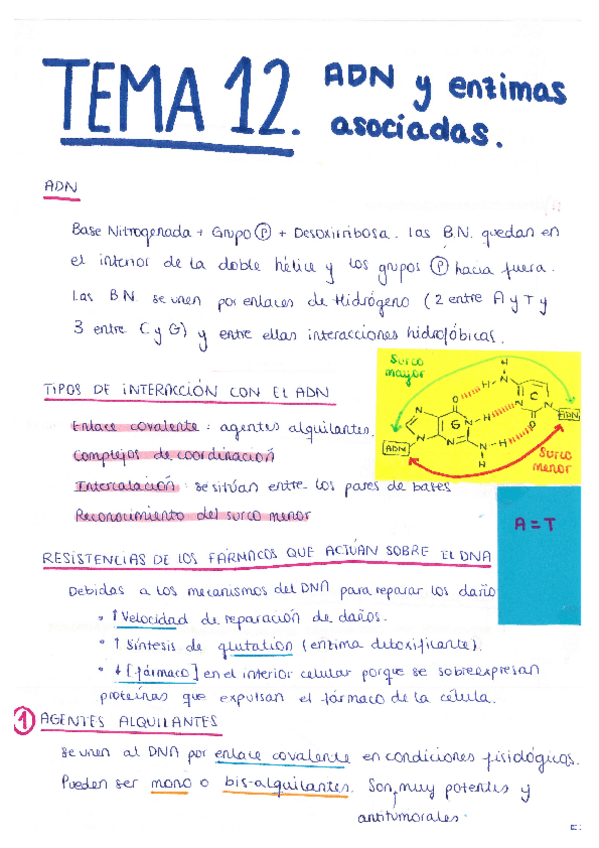 TEMA 12. ADN y enzimas
asociadas.
ADN
Base Nitrogenada + Grupo Ⓟ + Desoxirribosa. Las B.N. quedan en
el interior de la doble hélice y los grupos Ⓟ hacia fuera.
Las B.N. se unen por enlaces de Hidrógeno (2 entre A y T y
3 entre C y G) y entre ellas interacciones hidrofóbicas.
Surco
mayor
H
N
H
O
N
C
N
G
N
H
N
N
O
ADN
N
N
N
H
ADN
H
Surco
menor
TIPOS DE INTERACCIÓN CON EL ADN
Enlace covalente: agentes alquilantes.
Complejos de coordinación
Intercalación: se sitúan entre los pares de bases
Reconocimiento del surco menor
A = T
RESISTENCIAS DE LOS FÁRMACOS QUE ACTÚAN SOBRE EL DNA
Debidas a los mecanismos del DNA para reparar los daño
• ↑ Velocidad de reparación de daños.
• ↑ Síntesis de glutation (enzima detoxificante).
• ↓ [fármaco] en el interior celular porque se sobreexpresan
proteínas que expulsan el fármaco de la célula.
① AGENTES ALQUILANTES
Se unen al DNA por enlace covalente en condiciones fisiológicas.
Pueden ser mono o bis-alquilantes. Son muy potentes y
antitumorales.